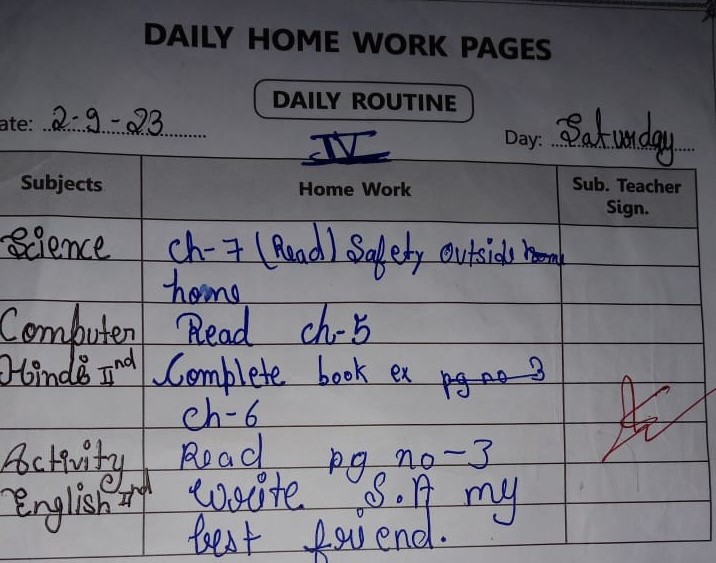 DAILY HOME WORK PAGES
DAILY ROUTINE
ate: 2-9-23
IV
Day: Saturday
Subjects Home Work Sub. Teacher
Sign.
Science ch-7 (Read) Safety Outside
home
Computer Read ch-5
Hindi IInd Complete book ex pg no 3
ch-6
Activity Read pg no-3
English IInd Write S.A my
best friend.